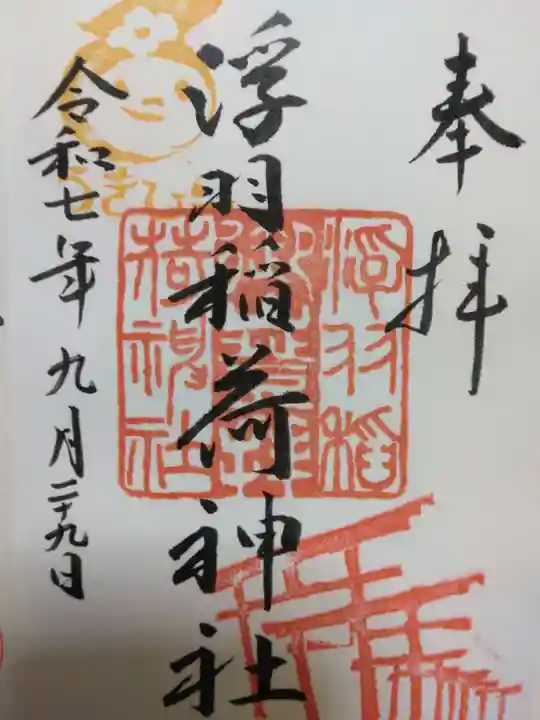 奉拝
浮羽稲荷神社
令和七年九月二十九日
浮羽稲
荷神社